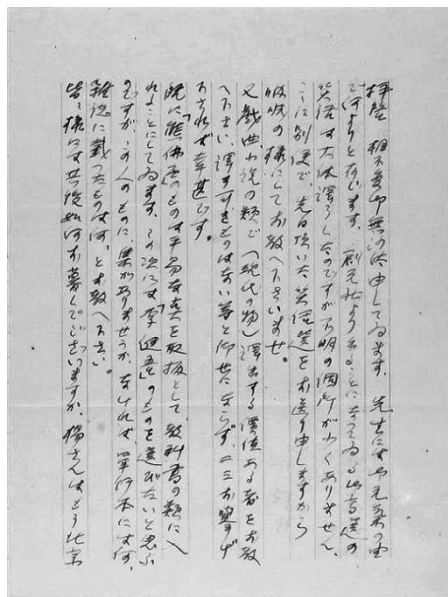 拝啓 相不変御無沙汰申してゐます。先生にはお元気の由
で何よりと存じます。創元社より出ることになつてゐる
笑話は大体譯了したのですが不明の個所が少くありません。
ここに別便で、先日頂いた笑話選をお送り申しますから
の様にしてお教へ下さいませ。
又戯曲小説の類で(現代の物)譯出する價値ある者をお教
へ下さい、譯す可きものはない等と仰せにならず、二三お擧げ
下されば幸甚です。
既に「熊佛西」のものは平易な文を取扱として、教科書の類に入
れることにしてゐます。この次には「李健吾」のものを選びたいと思ふ
のですが、この人のものに集がありませうか、なければ、單行本には何、
雑誌に載つたものは何、とお教へ下さい。
皆々様には其後如何お暮しでございますか、楊さんはもう北京